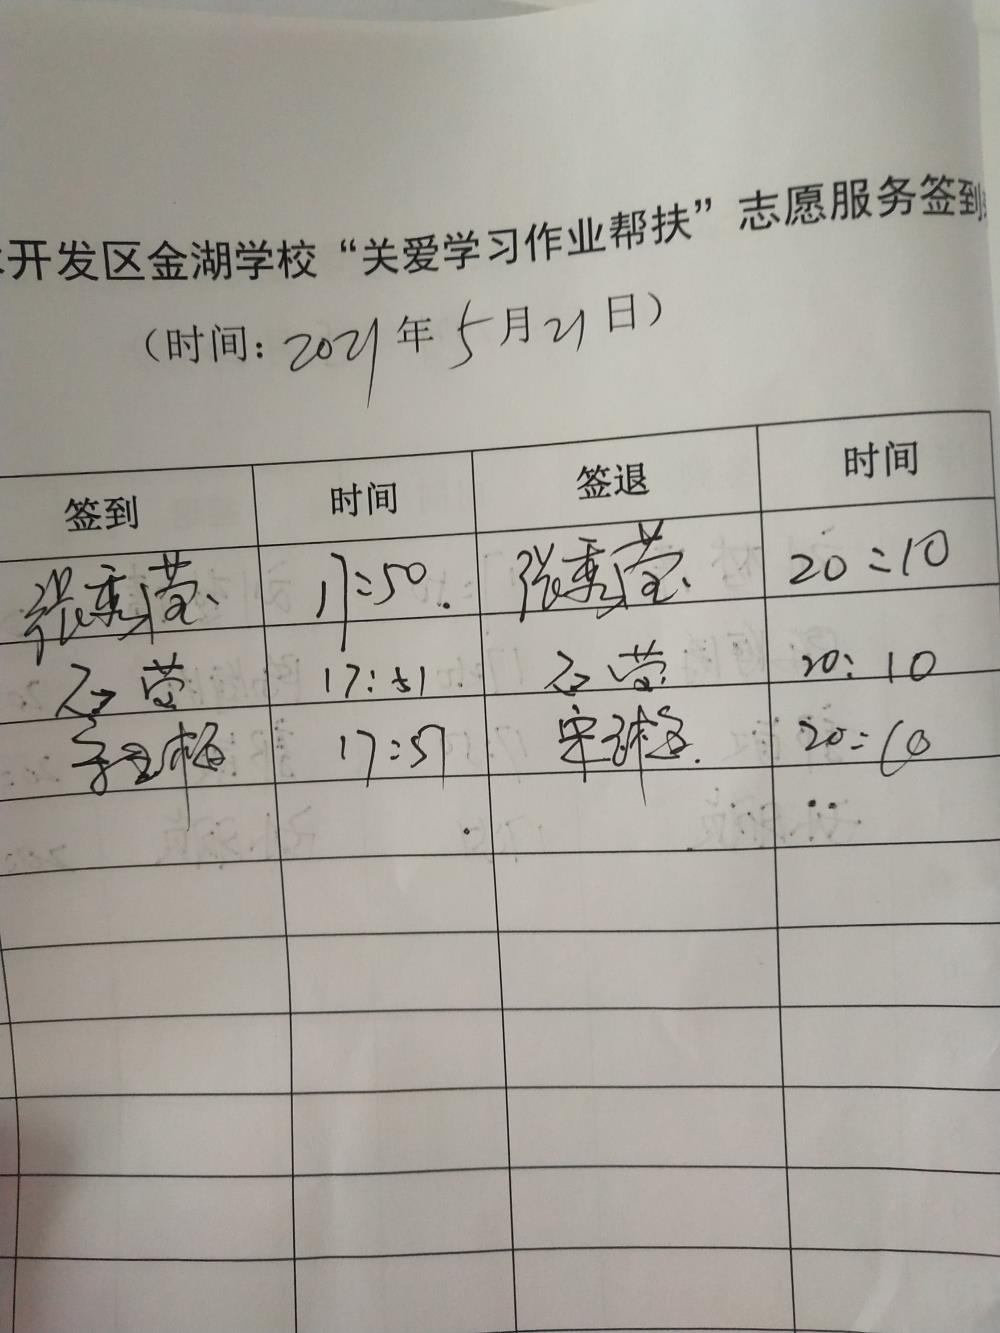 开发区金湖学校“关爱学习作业帮扶”志愿服务签到
（时间：2021年5月21日）
签到 时间 签退 时间
张秀莹 17:50 张秀莹 20:10
石莹 17:51 石莹 20:10
17:57 20:10